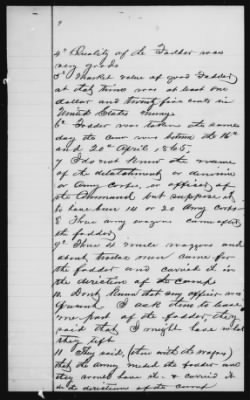 4th Quality of the Fodder was
very good
5th Market value of good Fodder
at that time was at least one
dollar and twenty five cents in
United States money
6th Fodder was taken the same
day the corn was between the 16th
and 20th April 1865,
7 I do not know the name
of the detachment or division
or Army Corps, or officer of
the Command but suppose it
to have been 14 or 20 Army Corps
8 Three army wagons came after
the fodder,
9th Three six mule wagons and
about twelve men came for
the fodder and carried it in
the direction of the camp
10. Dont know that any officer was
present I ask them to leave
me part of the fodder, they
said that I might have what
they left
11 They said, (those with the wagons)
that the army needed the fodder and
they would have it & carried it
in the direction of the camp